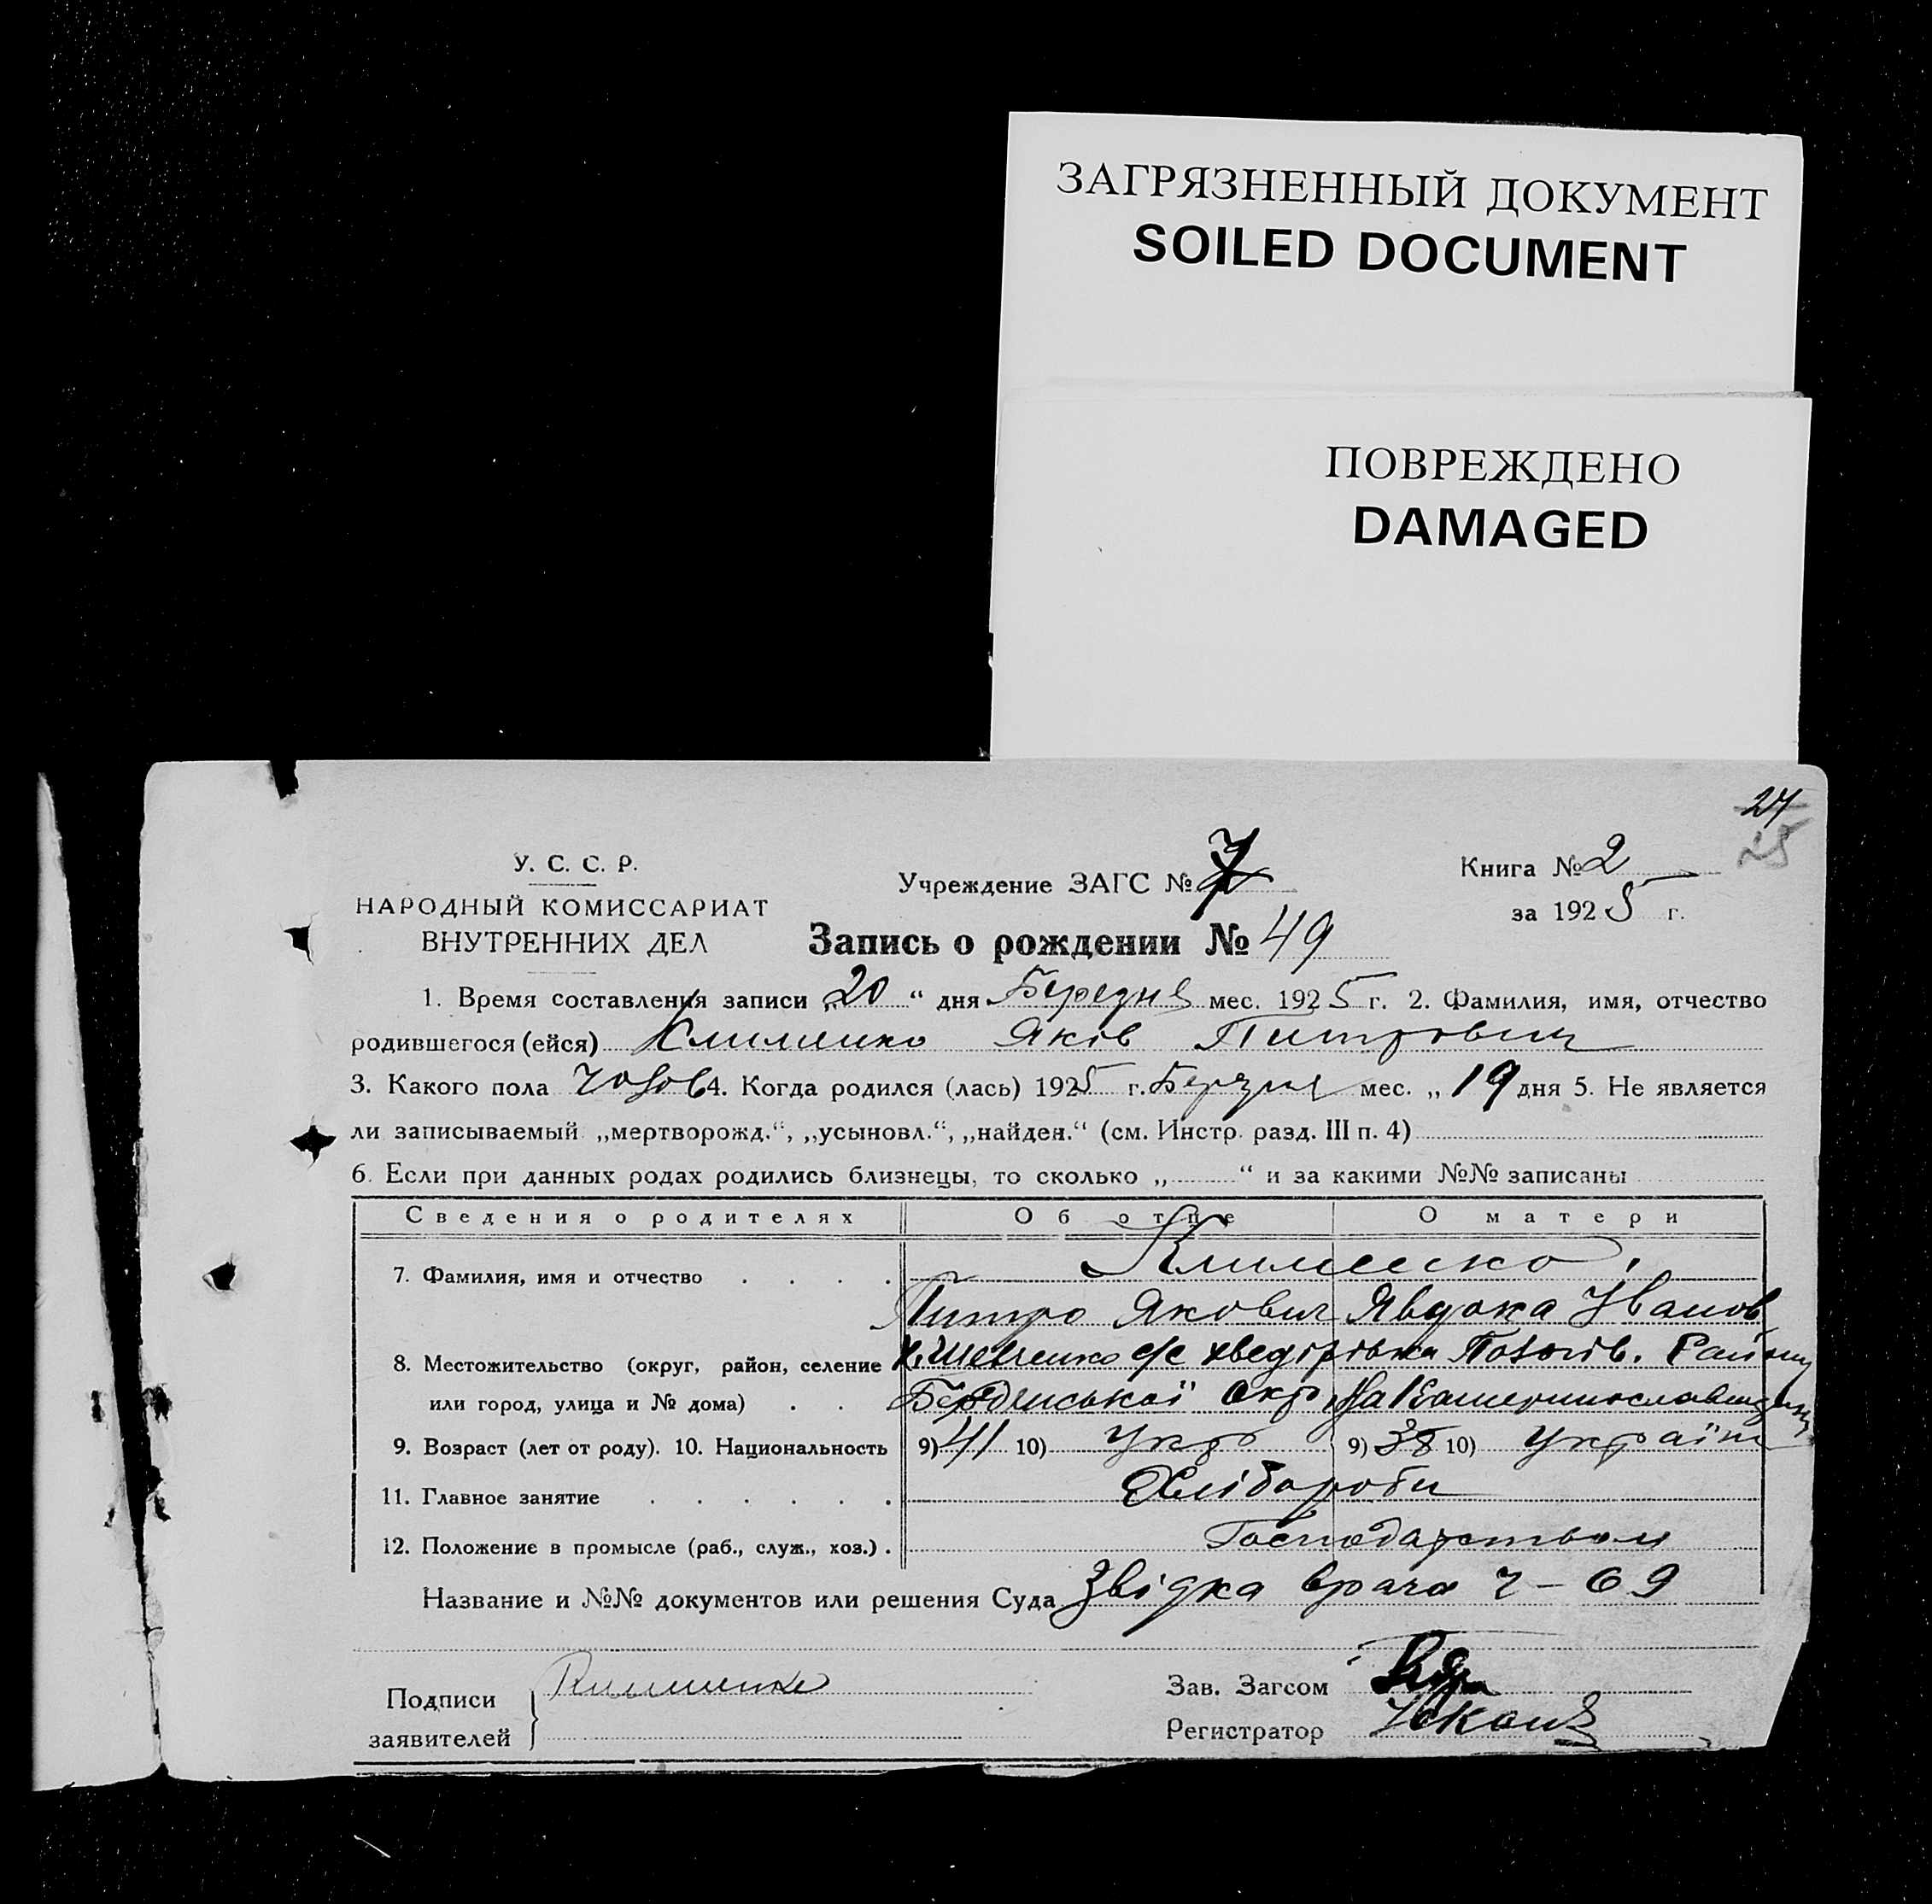 ЗАГРЯЗНЕННЫЙ ДОКУМЕНТ
SOILED DOCUMENT
ПОВРЕЖДЕНО
DAMAGED
24
25
У. С. С. Р.
НАРОДНЫЙ КОМИССАРИАТ
ВНУТРЕННИХ ДЕЛ
Учреждение ЗАГС № 7
Книга № 2
за 1925 г.
Запись о рождении № 49
1. Время составления записи „20“ дня Березня мес. 1925 г. 2. Фамилия, имя, отчество
родившегося (ейся) Клименко Яків Питрович
3. Какого пола чолов 4. Когда родился (лась) 1925 г. Березня мес. „19 дня 5. Не является
ли записываемый „мертворожд.“, „усыновл.“, „найден.“ (см. Инстр. разд. III п. 4)
6. Если при данных родах родились близнецы, то сколько „ “ и за какими №№ записаны
Сведения о родителях Об отце О матери
7. Фамилия, имя и отчество Клименко
Питро Якович Явдоха Иванов
8. Местожительство (округ, район, селение х. Шевченко с/с хведорівка Пологів. Району
или город, улица и № дома) Бердянської Окр. на Катеринославщині
9. Возраст (лет от роду). 10. Национальность 9) 41 10) Укр 9) 38 10) Україн
11. Главное занятие Хлібороби
12. Положение в промысле (раб., служ., хоз.) Господарством
Название и №№ документов или решения Суда Звідка врача ч – 69
Подписи Клименко
заявителей
Зав. Загсом
Регистратор